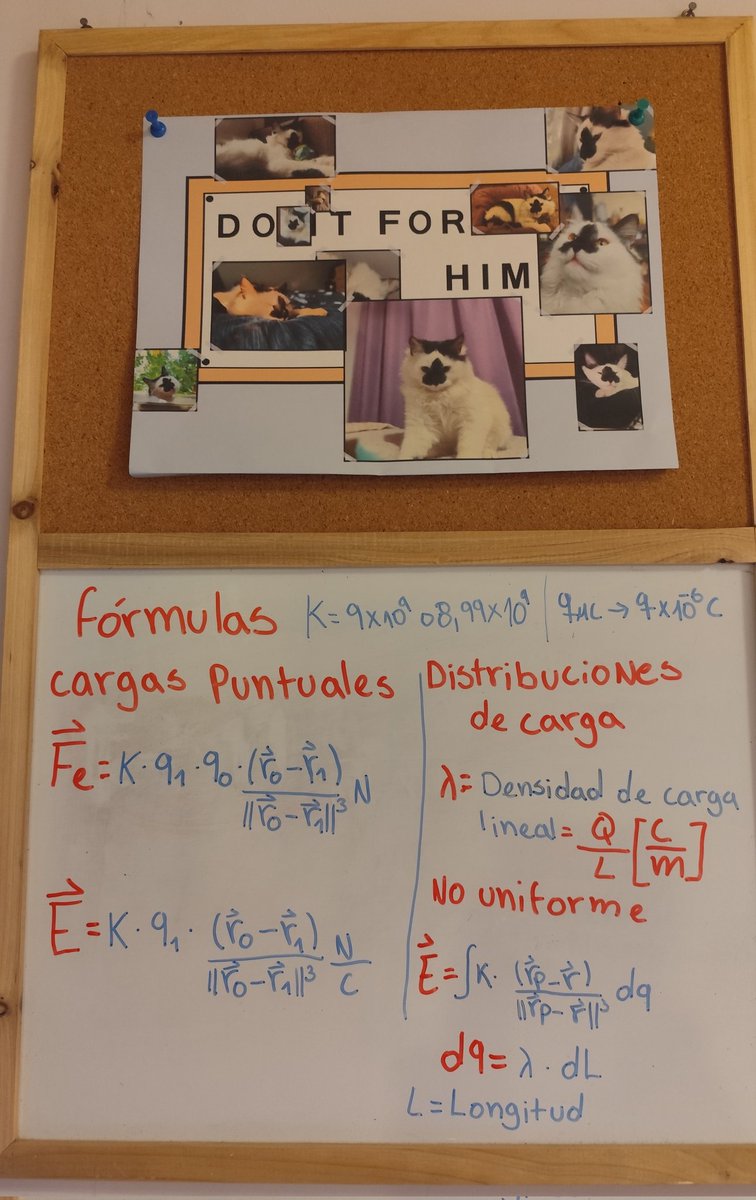 DO IT FOR
HIM
Fórmulas K=9x10⁹ o 8,99x10⁹ | qμC → q·x10⁻⁶C
cargas Puntuales
F⃗e = K·q₁·q₀·(r⃗₀-r⃗₁)/||r⃗₀-r⃗₁||³ N
E⃗ = K·q₁·(r⃗₀-r⃗₁)/||r⃗₀-r⃗₁||³ N/C
Distribuciones
de carga
λ= Densidad de carga
lineal = Q/L [C/m]
No uniforme
E⃗ = ∫K·(r⃗p-r⃗)/||r⃗p-r⃗||³ dq
dq = λ·dL
L = Longitud